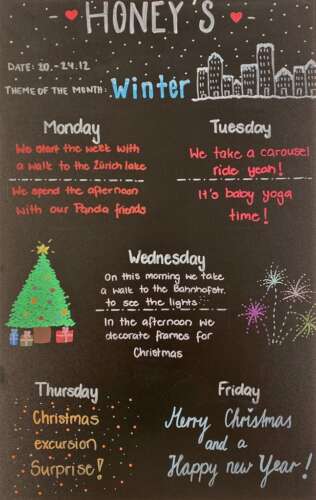 HONEY'S
DATE: 20.-24.12
THEME OF THE MONTH: Winter
Monday
We start the week with
a walk to the Zürich lake
We spend the afternoon
with our Panda friends
Tuesday
We take a carousel
ride yeah!
It's baby yoga
time!
Wednesday
On this morning we take
a walk to the Bahnhofstr.
to see the lights
In the afternoon we
decorate frames for
Christmas
Thursday
Christmas
excursion
Surprise!
Friday
Merry Christmas
and a
Happy new Year!